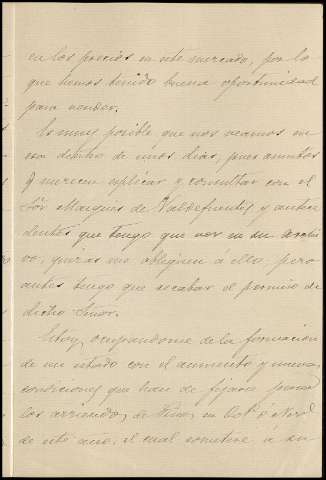 en los precios en este mercado, por lo
que hemos tenido buena oportunidad
para vender.
Es muy posible, que nos veamos en
esa dentro de unos dias, pues asuntos
q merecen esplicar y consultar con el
Sor Marques de Valdefuentes y antece
dentes que tengo que ver en su archi
vo, quizas me obliguen á ello, pero
antes tengo que recabar el permiso de
dicho Señor.
Estoy ocupandome de la formacion
de un estado con el aumento y nuevas
condiciones que han de fijarse para
los arriendos, de fincas, en Oct.e ó Nov.e
de este año, el cual someteré á su